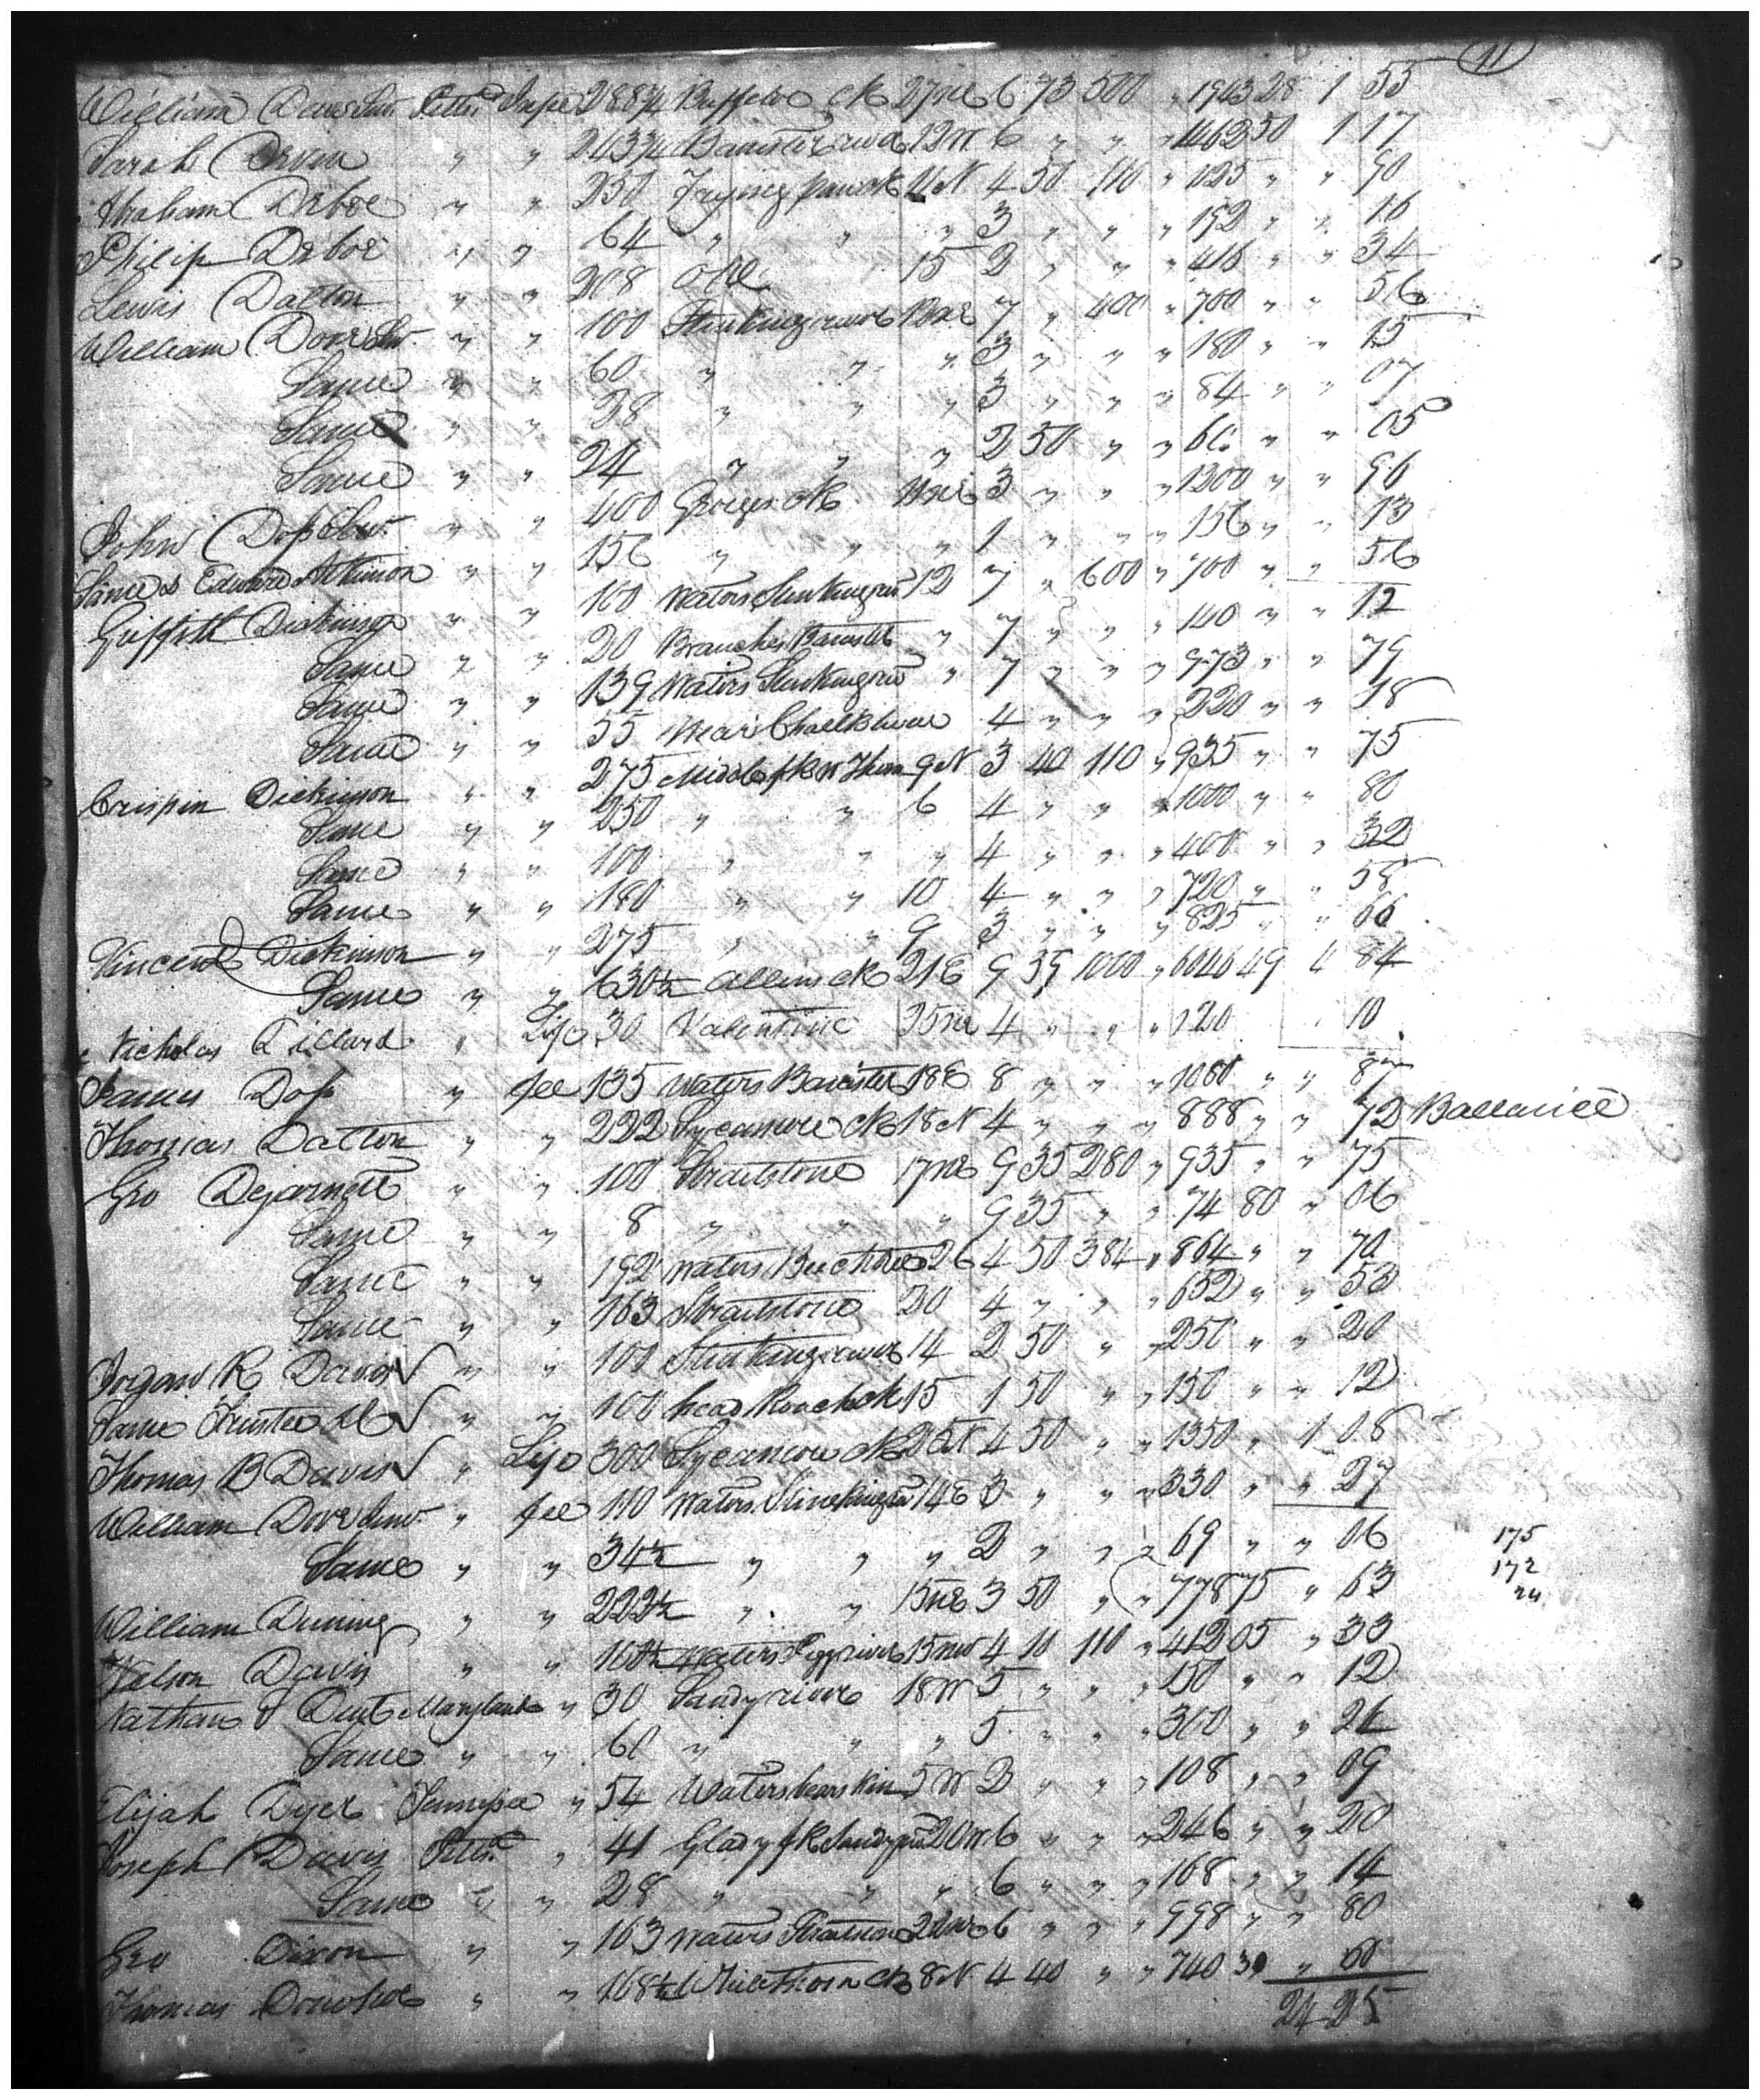 11
William Davis Senr Pittsa Inpe 288¾ Buffelo ck 27 NE 6 73 500 " 1943 28 1 55
Sarah " " 243¾ Banister river 12 W 6 " " " 1462 50 1 17
Abraham Deboe " " 250 Frying pan ck 11 N 4 50 110 " 1125 " " 90
Philip Deboe " " 64 " " " 3 " " " 192 " " 16
Lewis Dalton " " 208 15 2 " " " 416 " " 34
William Dove Senr " " 100 Stinking river 13 NE 7 " 400 " 700 " " 56
Same " " 60 " " " 3 " " " 180 " " 15
Same " " 28 " " " 3 " " " 84 " " 07
Same " " 24 " " " 2 50 " " 60 " " 05
John Doss Senr " " 400 Georges ck 11 NE 3 " " " 1200 " " 96
Same & Edward Atkinson " " 156 " " " 1 " " " 156 " " 13
Griffith Dickinson " " 100 Waters Stinking river 12 7 " 600 " 700 " " 56
Same " " 20 Branches Banister " 7 " " " 140 " " 12
Same " " 139 Waters Stinking river " 7 " " " 973 " " 79
Same " " 55 Near Chalk 4 " " " 220 " " 18
Crispin Dickinson " " 275 Middle fk W Thorn 9 N 3 40 110 " 935 " " 75
Same " " 250 " " 6 4 " " " 1000 " " 80
Same " " 100 " " " 4 " " " 400 " " 32
Same " " 180 " " 10 4 " " " 720 " " 58
Vincent Dickinson " " 275 " " 9 3 " " " 825 " " 66
Same " " 630½ Allens ck 21 E 9 59 1000 " 6046 49 4 84
Nicholas Dillard " Life 30 Valentine 25 NE 4 " " " 120 " 10
James Doss " fee 135 Waters Banister 18 E 8 " " " 1080 " " 87
Thomas Dalton " " 222 Sycamore Ck 18 N 4 " " " 888 " " 72
Geo Dejarnett " " 100 Straitstone 17 NE 9 35 280 " 935 " " 75
Same " " 8 " " " 9 35 " " 74 80 " 06
Same " " 192 Waters Beechtree 26 4 50 384 " 864 " " 70
Same " " 163 Straitstone 20 4 " " " 652 " " 53
R Davis " " 100 Stinking river 14 2 50 " " 250 " " 20
Same Trustee " " 100 head Roach ck 15 1 50 " " 150 " " 12
Thomas B Davis " Life 300 Sycamore ck 25 N 4 50 " " 1350 " 1 08
William Dove Junr " fee 110 Waters Stinking river 14 E 3 " " " 330 " " 27
Same " " 34½ " " " 2 " " " 69 " " 06 175
William Duning " " 222½ " " 15 NE 3 50 " " 778 75 " 63 172
Nelson Davis " " 100½ Waters Pigg river 15 NW 4 10 110 " 412 05 " 33 24
Nathan Dent Maryland " 30 Sandy river 18 W 5 " " " 150 " " 12
Same " " 60 " " " 5 " " " 300 " " 24
Elijah Dyer Tennessee " 54 Waters bearskin 5 W 2 " " " 108 " " 09
Joseph Davis Pittsa " 41 Glady fk Sandy river 20 W 6 " " " 246 " " 20
Same " " 28 " " " 6 " " " 168 " " 14
Geo Dixon " " 163 Waters 6 " " " 998 " " 80
Thomas Donohoe " " 168¼ Whitethorn ck 8 N 4 40 " " 740 30 " 60
24 25